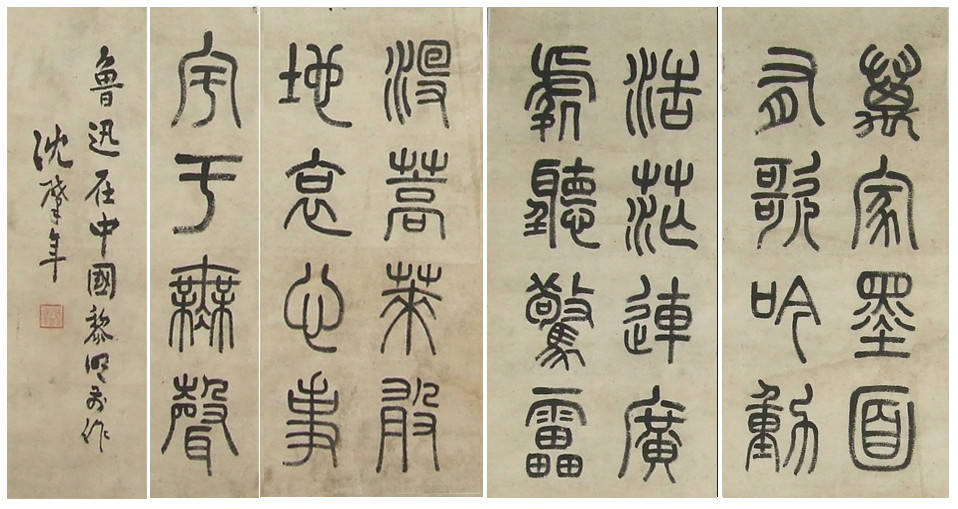 萬家墨面
有歌吟動
浩茫連廣
處聽驚靁
沒蒿萊敢
地哀心事
宇于無聲
魯迅在中國黎明前作
沈肇年